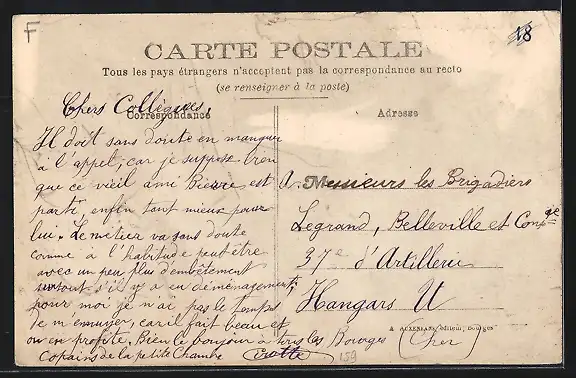 F
18
CARTE POSTALE
Tous les pays étrangers n'acceptent pas la correspondance au recto
(se renseigner à la poste)
Correspondance
Adresse
Chers Collègues,
Il doit sans doute en manquer
à l'appel, car je suppose bien
que ce vieil ami Bierre est
parti, enfin tant mieux pour
lui. Le métier va sans doute
comme à l'habitude peut-être
avec un peu plus d'embêtement
surtout s'il y a eu déménagement;
pour moi je n'ai pas le temps
de m'ennuyer, car il fait beau et
on en profite. Bien le bonjour à tous les
Copains de la petite Chambre
159
A Messieurs les Brigadiers
Legrand, Belleville et Congé
37e d'Artillerie
Hangars U
A AUXENFANS, éditeur, Bourges
Bourges (Cher)